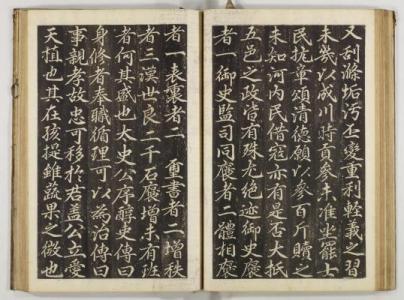 又刮滌垢汚丕變重利輕義之習
未幾以成川時貢參未准坐罷士
民抗章頌清德願以參百斤贖之
未知河内民借寇亦有是否大抵
五邑之政皆有殊尤絶迹御史褒
者一御史監司同褒者二體相褒
者一表裏者二璽書者二增秩
者三漢世良二千石褒增未有班
者何其盛也大史公序循吏傳曰
身修者奉職循理可以為治傳曰
事親孝故忠可移於君盖公立愛
天植也其在孩提雖蔬果之微也